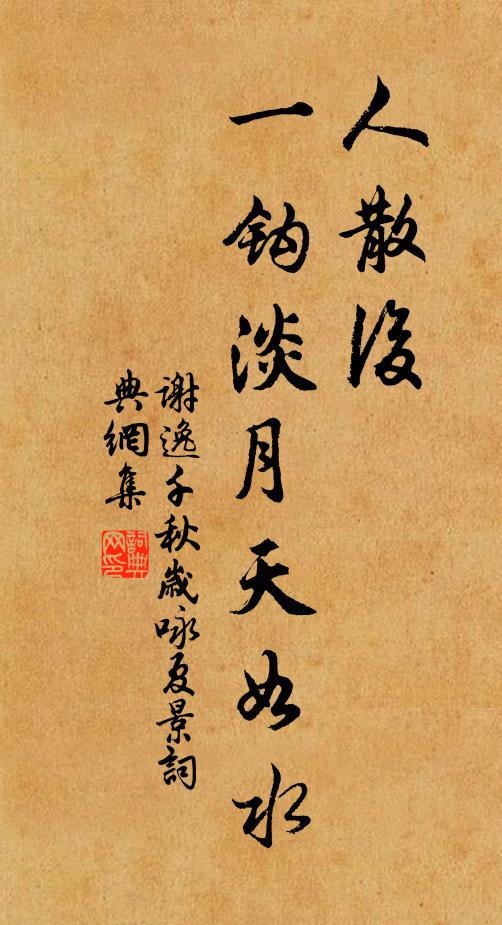 人散後
一鈎淡月天如水
謝逸千秋歲咏夏景詞
典網集
詞典网印